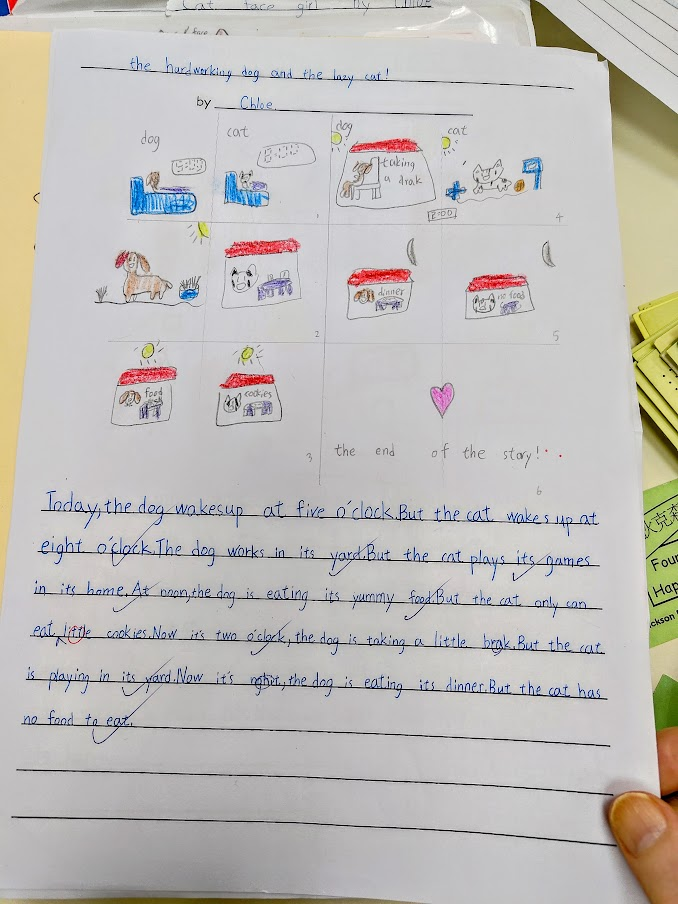 Cat face girl by Chloe
the hurdworking dog and the lazy cat!
by Chloe
dog
cat
dog
cat
5:00
8:00
taking
a drak
2:00
1
4
dinner
no food
2
5
food
cookies
3
the end of the story!..
6
Today,the dog wakesup at five o'clock.But the cat wakes up at
eight o'clock.The dog works in its yard.But the cat plays its games
in its home.At noon,the dog is eating its yummy food.But the cat only can
eat little cookies.Now it's two o'clock,the dog is taking a little brak.But the cat
is playing in its yard.Now it's nghit,the dog is eating its dinner.But the cat has
no food to eat.
狄克森
Foun
Hap
ckson